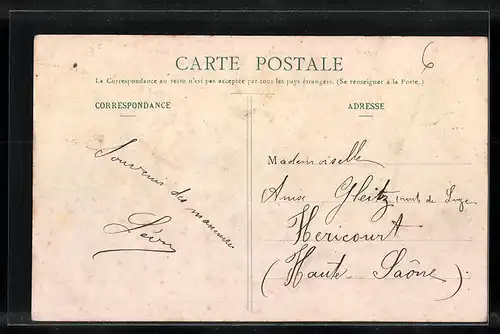 CARTE POSTALE
6
La Correspondance au recto n'est pas acceptée par tous les pays étrangers. (Se renseigner à la Poste.)
CORRESPONDANCE
ADRESSE
Souvenir des
Mademoiselle
Gleitz
Héricourt
(Haute-Saône)